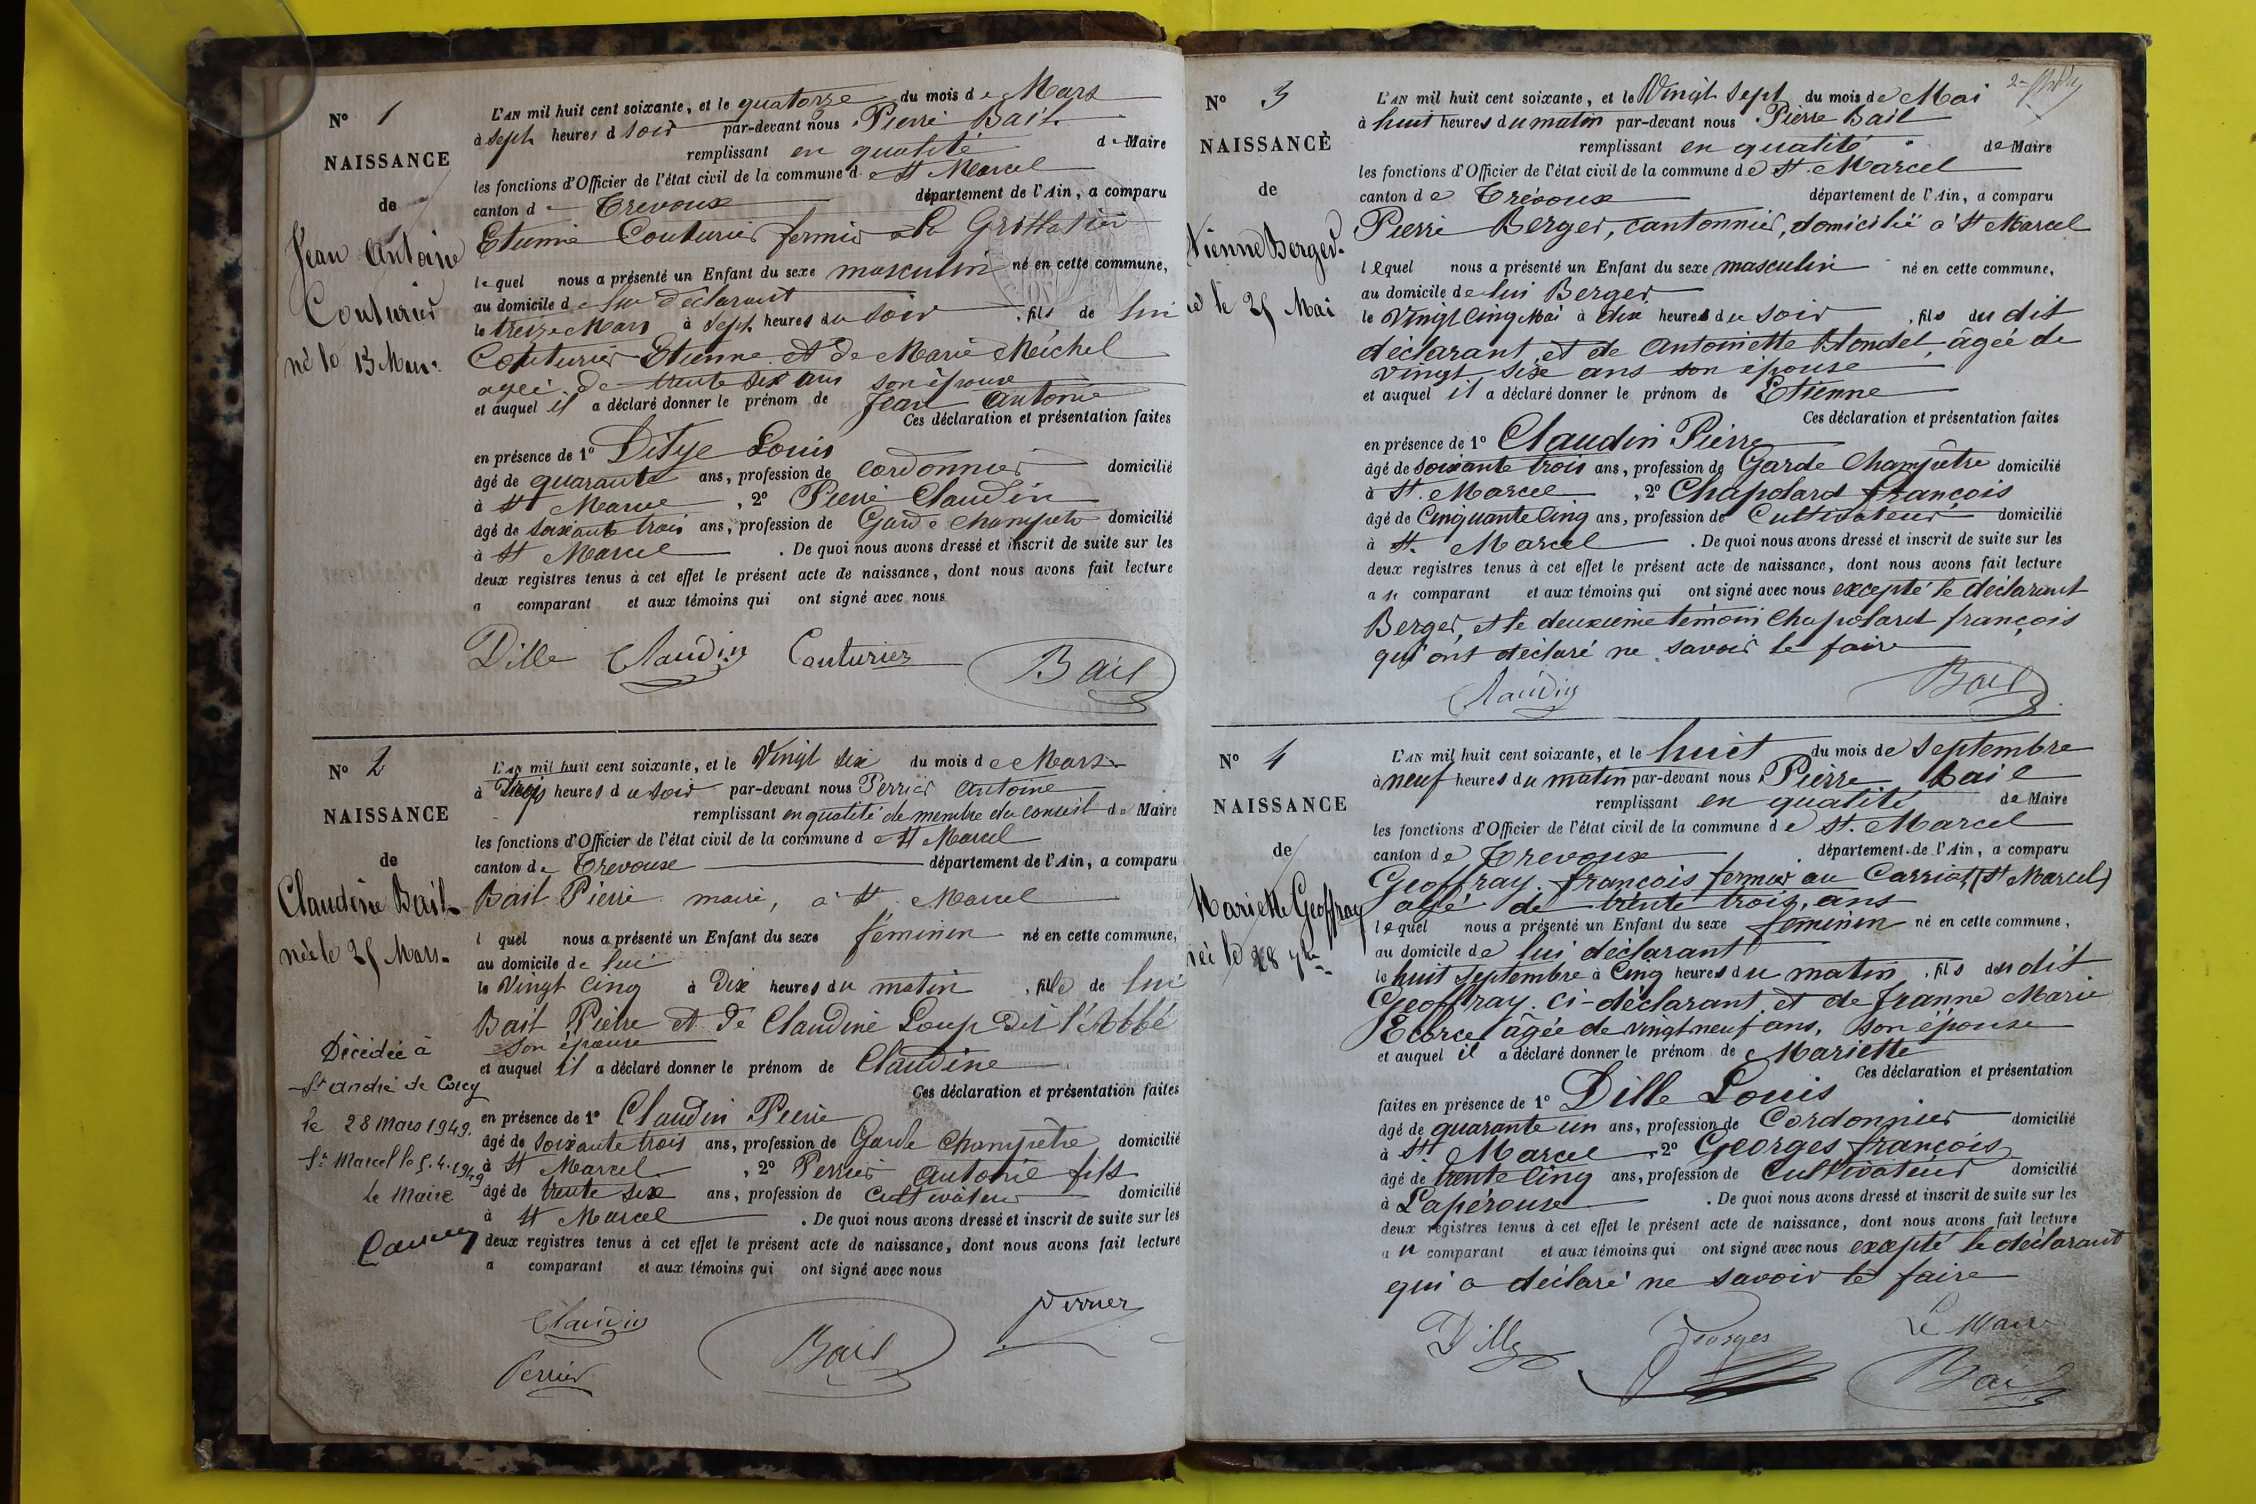 N° 1
NAISSANCE
de
Jean Antoine
Couturier
né le 13 Mars
L'AN mil huit cent soixante, et le quatorze du mois de Mars
à sept heures d soir par-devant nous Pierre Bail
remplissant en qualité de Maire
les fonctions d'Officier de l'état civil de la commune de St Marcel
canton de Trevoux département de l'Ain, a comparu
Etienne Couturier fermier
lequel nous a présenté un Enfant du sexe masculin né en cette commune,
au domicile de déclarant
le treize Mars à sept heures du soir , fils de lui
Couturier Etienne et de Marie Michel
agée de trente six ans son épouse
et auquel il a déclaré donner le prénom de Jean Antoine
Ces déclaration et présentation faites
en présence de 1° Louis
âgé de quarante ans, profession de cordonnier domicilié
à St Marcel , 2° Pierre Claudin
âgé de soixante trois ans, profession de Garde champetre domicilié
à St Marcel . De quoi nous avons dressé et inscrit de suite sur les
deux registres tenus à cet effet le présent acte de naissance, dont nous avons fait lecture
a comparant et aux témoins qui ont signé avec nous
Dille Claudin Couturier Bail
N° 2
NAISSANCE
de
Claudine Bail
née le 25 Mars
Décédée à
St André de Corcy
le 28 Mars 1949.
St Marcel le 5.4.1949
Le Maire
L'AN mil huit cent soixante, et le Vingt six du mois de Mars
à heures du soir par-devant nous Perrier Antoine
remplissant en qualité de membre du conseil de Maire
les fonctions d'Officier de l'état civil de la commune d St Marcel
canton de Trevoux département de l'Ain, a comparu
Bail Pierre maire, à St Marcel
l quel nous a présenté un Enfant du sexe féminin né en cette commune,
au domicile de lui
le Vingt cinq à Dix heures du matin , fille de lui
Bail Pierre et de Claudine Loup dit l'Abbé
son épouse
et auquel il a déclaré donner le prénom de Claudine
Ces déclaration et présentation faites
en présence de 1° Claudin Pierre
âgé de soixante trois ans, profession de Garde Champêtre domicilié
à St Marcel , 2° Perrier Antoine fils
âgé de trente six ans, profession de cultivateur domicilié
à St Marcel . De quoi nous avons dressé et inscrit de suite sur les
deux registres tenus à cet effet le présent acte de naissance, dont nous avons fait lecture
a comparant et aux témoins qui ont signé avec nous
Claudin Bail Perrier
Perrier
N° 3
NAISSANCE
de
tienne Berger
né le 25 Mai
L'AN mil huit cent soixante, et le Vingt sept du mois de Mai
à huit heures du matin par-devant nous Pierre Bail
remplissant en qualité de Maire
les fonctions d'Officier de l'état civil de la commune de St. Marcel
canton de Trévoux département de l'Ain, a comparu
Pierre Berger, cantonnier, domicilié à St Marcel
lequel nous a présenté un Enfant du sexe masculin né en cette commune,
au domicile de lui Berger
le vingt cinq Mai à dix heures du soir , fils du dit
déclarant, et de Antoinette Blondel, âgée de
vingt six ans son épouse
et auquel il a déclaré donner le prénom de Etienne
Ces déclaration et présentation faites
en présence de 1° Claudin Pierre
âgé de soixante trois ans, profession de Garde Champêtre domicilié
à St. Marcel , 2° Chapolard françois
âgé de cinquante cinq ans, profession de Cultivateur domicilié
à St. Marcel . De quoi nous avons dressé et inscrit de suite sur les
deux registres tenus à cet effet le présent acte de naissance, dont nous avons fait lecture
a comparant et aux témoins qui ont signé avec nous excepté le déclarant
Berger, et le deuxième témoin Chapolard françois
qui ont déclaré ne savoir le faire
Claudin Bail
N° 4
NAISSANCE
de
Mariette Geoffray
née le 8 7bre
L'AN mil huit cent soixante, et le huit du mois de septembre
à neuf heures du matin par-devant nous Pierre Bail
remplissant en qualité de Maire
les fonctions d'Officier de l'état civil de la commune de St. Marcel
canton de Trevoux département de l'Ain, a comparu
Geoffray françois fermier au Carriat (St Marcel)
agé de trente trois ans
lequel nous a présenté un Enfant du sexe féminin né en cette commune,
au domicile de lui déclarant
le huit septembre à cinq heures du matin , fils du dit
Geoffray ci-déclarant et de Jeanne Marie
Ecorcel âgée de vingt neuf ans, son épouse
et auquel il a déclaré donner le prénom de Mariette
Ces déclaration et présentation
faites en présence de 1° Dille Louis
âgé de quarante un ans, profession de Cordonnier domicilié
à St Marcel 2° Georges françois
âgé de trente cinq ans, profession de Cultivateur domicilié
à Lapérouse . De quoi nous avons dressé et inscrit de suite sur les
deux registres tenus à cet effet le présent acte de naissance, dont nous avons fait lecture
a u comparant et aux témoins qui ont signé avec nous excepté le déclarant
qui a déclaré ne savoir le faire
Dille Georges Le Maire
Bail